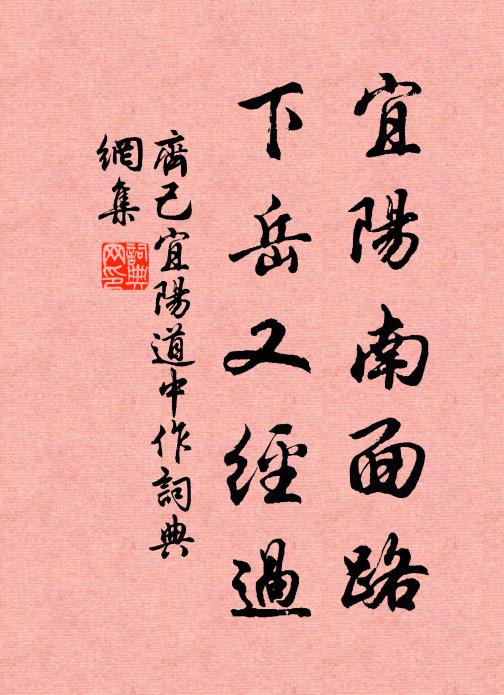 宜陽南面路
下岳又經過
齊己宜陽道中作詞典
網集
詞典
网印